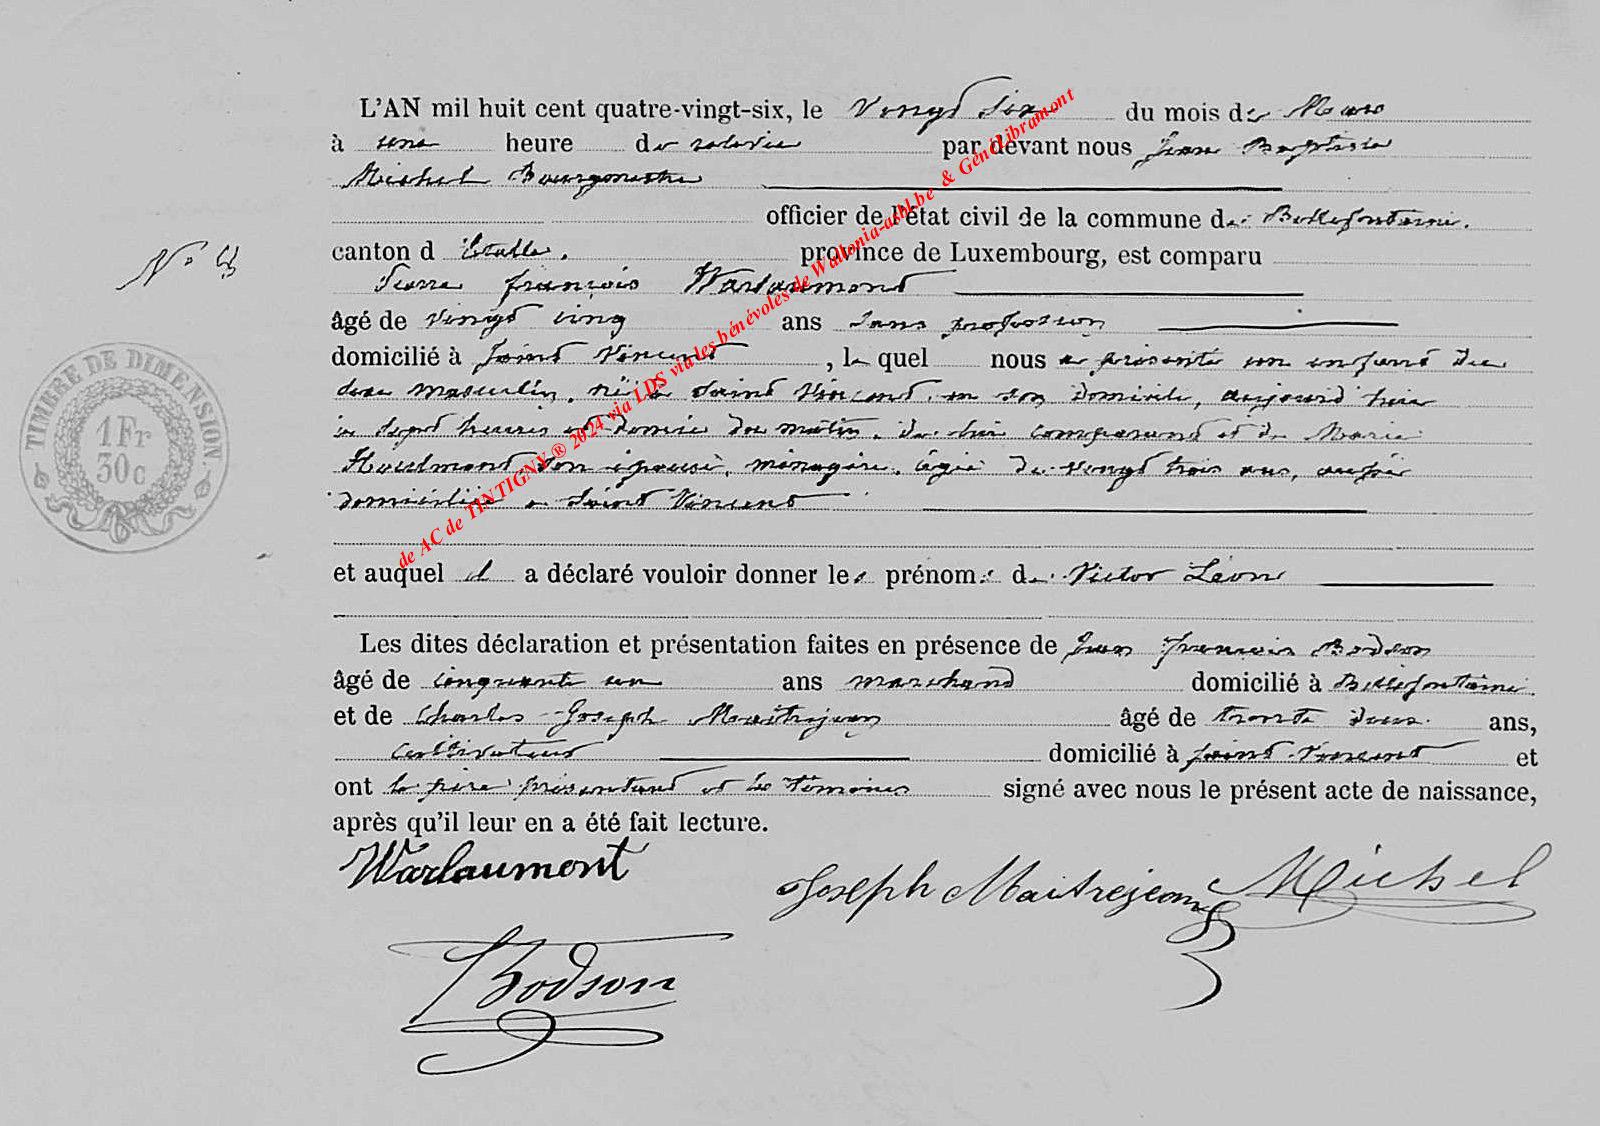 L'AN mil huit cent quatre-vingt-six, le vingt six du mois de Mars
à une heure de relevée par devant nous Jean Baptiste
Michel Bourgmestre
officier de l'état civil de la commune de Bellefontaine.
canton d'Etalle. province de Luxembourg, est comparu
Pierre françois Warlaumont
âgé de vingt cinq ans sans profession
domicilié à Saint Vincent, le quel nous a présenté un enfant du
sexe masculin, né à Saint Vincent, en son domicile, aujourd'hui
à sept heures et demie du matin, de lui comparant et de Marie
son épouse, ménagère, âgée de vingt trois ans, aussi
domiciliée à Saint Vincent
et auquel il a déclaré vouloir donner les prénoms de Victor Léon
Les dites déclaration et présentation faites en présence de Jean françois Bodson
âgé de cinquante un ans marchand domicilié à Bellefontaine
et de Charles Joseph Maitrejean âgé de trente deux ans,
cultivateur domicilié à Saint-Vincent et
ont le père présentant et les témoins signé avec nous le présent acte de naissance,
après qu'il leur en a été fait lecture.
Warlaumont
Joseph Maitrejean Michel
Bodson
N°
TIMBRE DE DIMENSION
1 Fr
30 c
de AC de TINTIGNY ® 2024 via LDS via les bénévoles de Wallonia-asbl.be & GenéLibramont